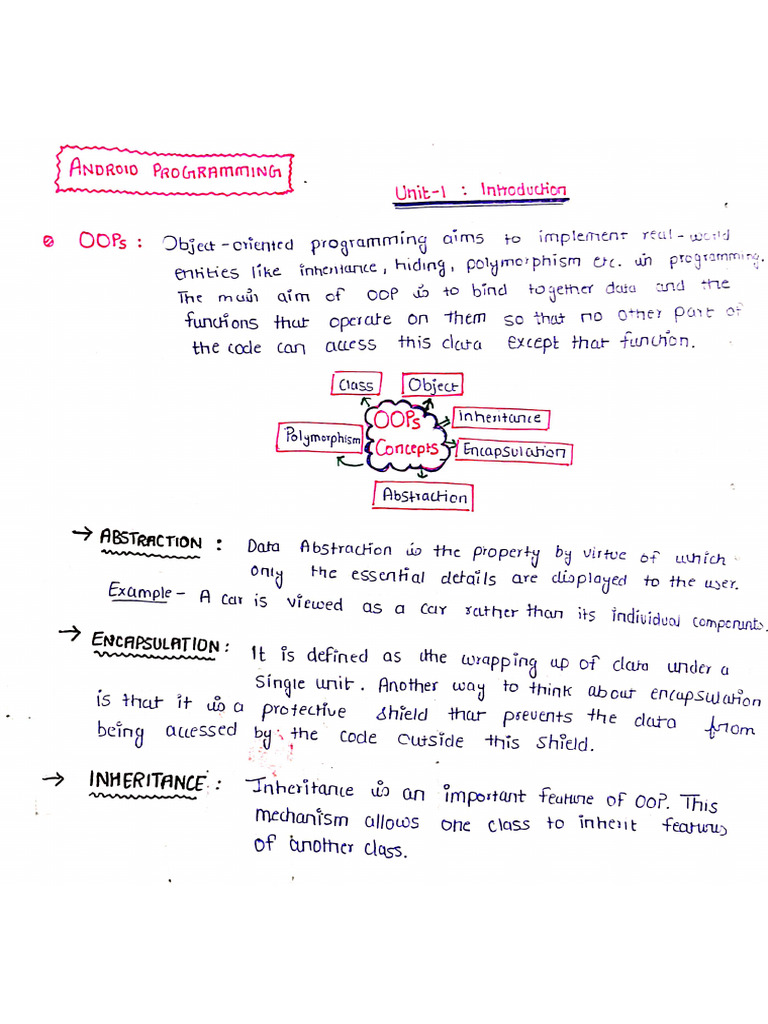 ANDROID PROGRAMMING
Unit-1 : Introduction
OOPs : Object-oriented programming aims to implement real-world
entities like inheritance, hiding, polymorphism etc. in programming.
The main aim of OOP is to bind together data and the
functions that operate on them so that no other part of
the code can access this data except that function.
Class Object
OOPs Inheritance
Polymorphism Concepts Encapsulation
Abstraction
→ ABSTRACTION : Data Abstraction is the property by virtue of which
only the essential details are displayed to the user.
Example - A car is viewed as a car rather than its individual components.
→ ENCAPSULATION : It is defined as the wrapping up of data under a
single unit. Another way to think about encapsulation
is that it is a protective shield that prevents the data from
being accessed by the code outside this shield.
→ INHERITANCE : Inheritance is an important feature of OOP. This
mechanism allows one class to inherit features
of another class.